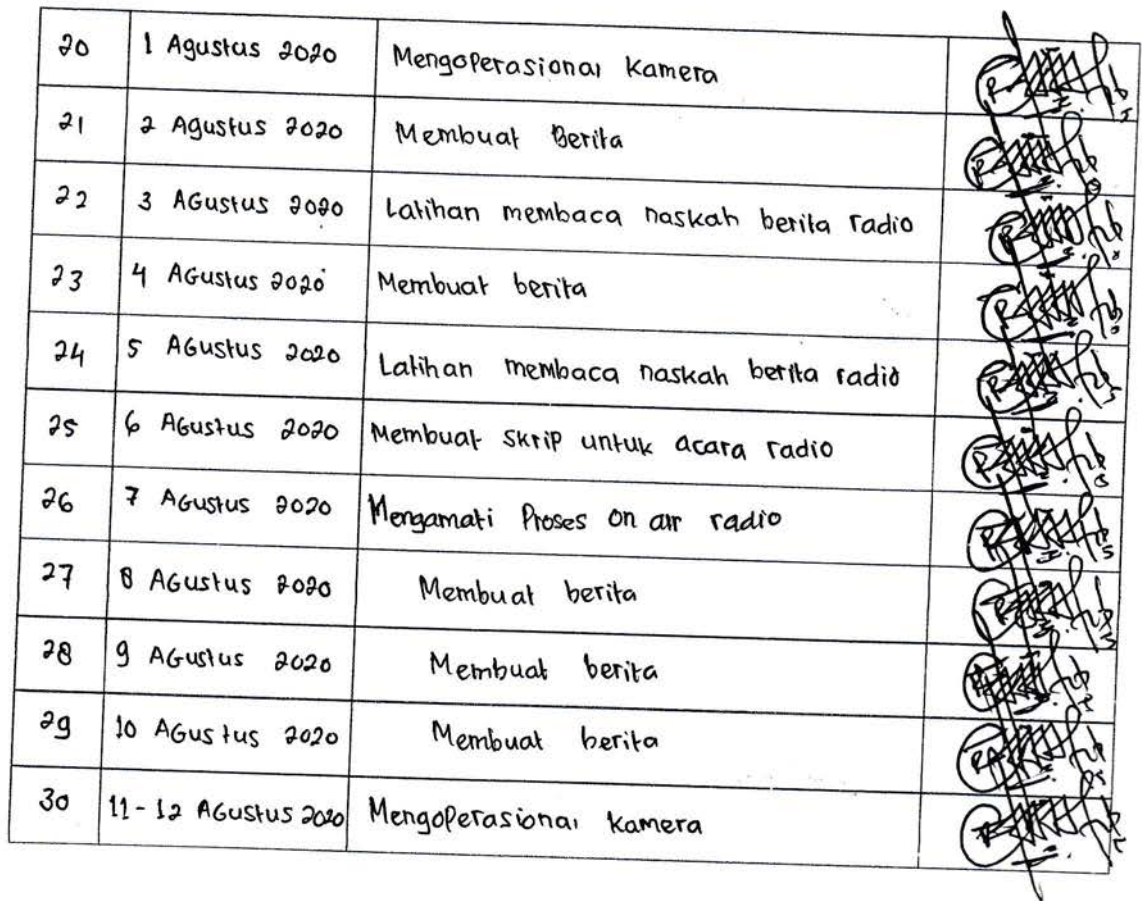 20 1 Agustus 2020 Mengoperasional Kamera
21 2 Agustus 2020 Membuat Berita
22 3 AGustus 2020 Latihan membaca naskah berita radio
23 4 AGustus 2020 Membuat berita
24 5 AGustus 2020 Latihan membaca naskah berita radio
25 6 AGustus 2020 Membuat skrip untuk acara radio
26 7 AGustus 2020 Mengamati Proses on air radio
27 8 AGustus 2020 Membuat berita
28 9 AGustus 2020 Membuat berita
29 10 AGustus 2020 Membuat berita
30 11-12 AGustus 2020 Mengoperasional kamera